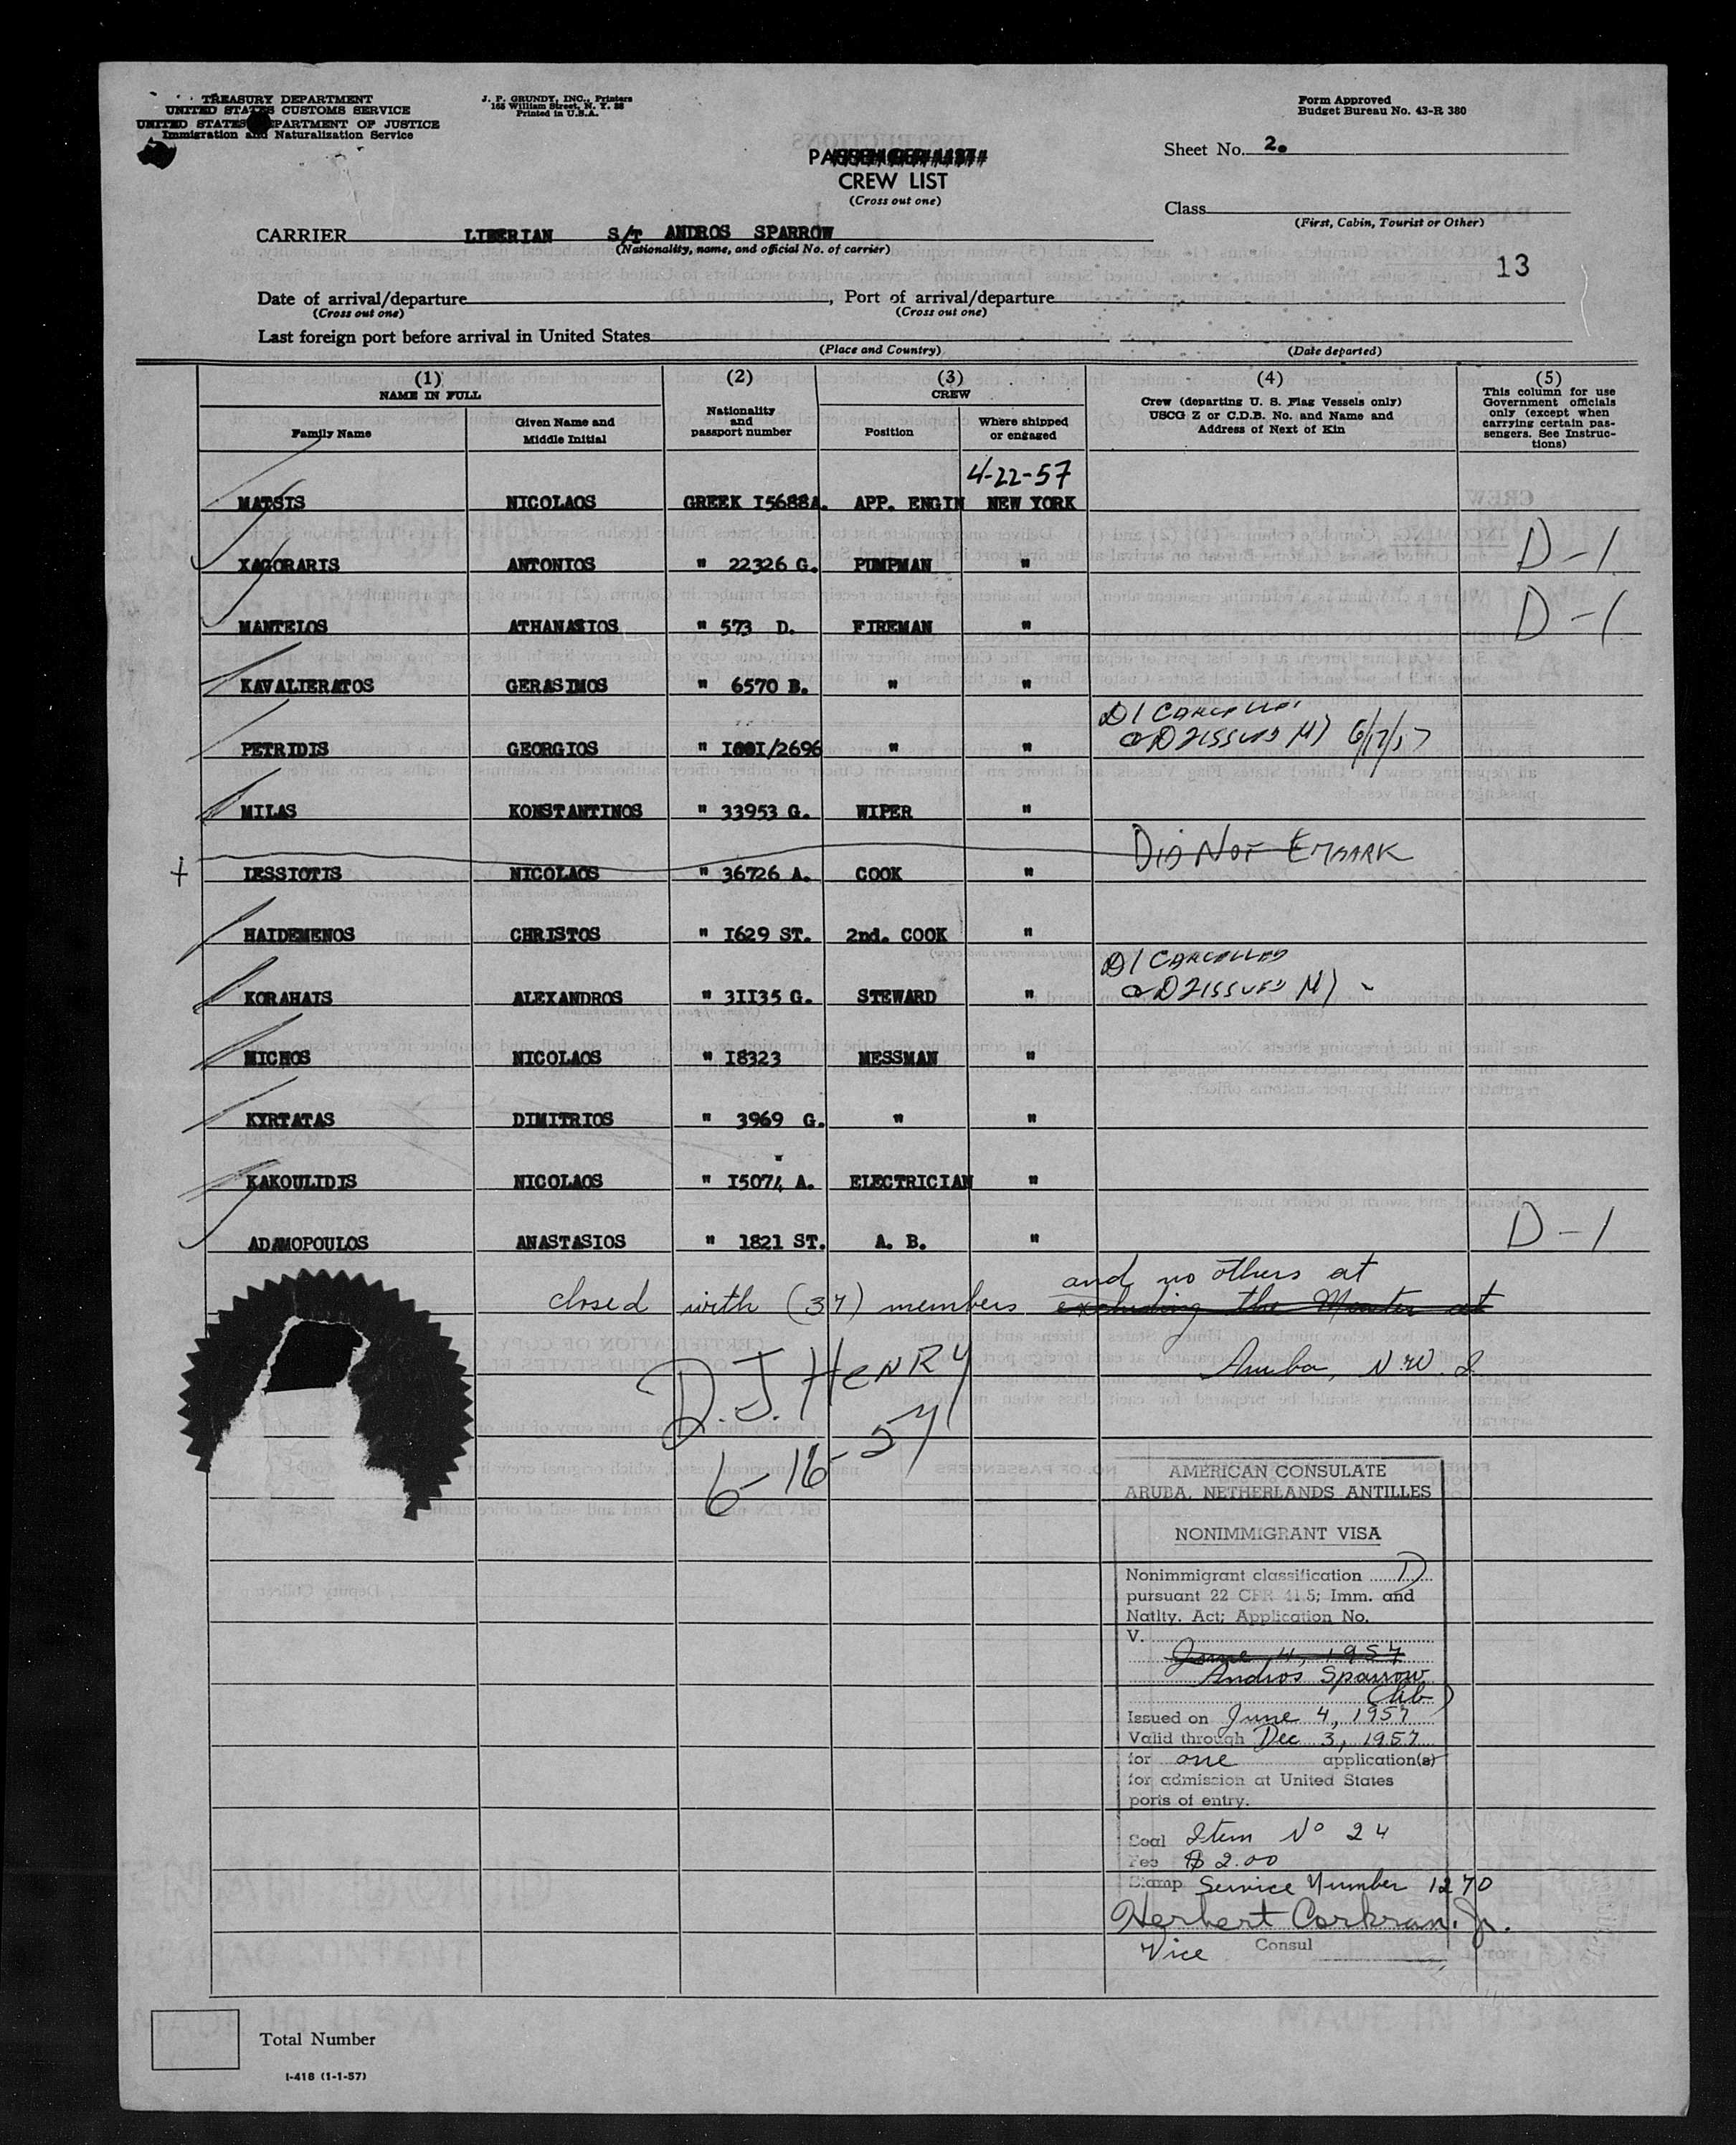 TREASURY DEPARTMENT
UNITED STATES CUSTOMS SERVICE
UNITED STATES DEPARTMENT OF JUSTICE
Immigration and Naturalization Service
J. P. GRUNDY, INC., Printers
165 William Street, N. Y. 38
Printed in U.S.A.
Form Approved
Budget Bureau No. 43-R 380
Sheet No. 2.
PASSENGER LIST
CREW LIST
(Cross out one)
Class
(First, Cabin, Tourist or Other)
CARRIER LIBERIAN S/T ANDROS SPARROW
(Nationality, name, and official No. of carrier)
13
Date of arrival/departure , Port of arrival/departure
(Cross out one) (Cross out one)
Last foreign port before arrival in United States
(Place and Country) (Date departed)
(1) (2) (3) (4) (5)
NAME IN FULL
Family Name
Given Name and Middle Initial
Nationality and passport number
CREW
Position
Where shipped or engaged
Crew (departing U. S. Flag Vessels only)
USCG Z or C.D.B. No. and Name and
Address of Next of Kin
This column for use
Government officials
only (except when
carrying certain pas-
sengers. See Instruc-
tions)
4-22-57
MATSIS NICOLAOS GREEK I5688A. APP. ENGIN NEW YORK
XAGORARIS ANTONIOS " 22326 G. PUMPMAN " D-1
MANTELOS ATHANASIOS " 573 D. FIREMAN " D-1
KAVALIERATOS GERASIMOS " 6570 B. " "
D1 CANCELLED
PETRIDIS GEORGIOS " I00I/2696 " " D2 ISSUED 6/17/57
MILAS KONSTANTINOS " 33953 G. WIPER "
+ LESSIOTIS NICOLAOS " 36726 A. COOK " DID NOT EMBARK
HAIDEMENOS CHRISTOS " I629 ST. 2nd. COOK "
D1 CANCELLED
KORAHAIS ALEXANDROS " 3II35 G. STEWARD " D2 ISSUED
MICHOS NICOLAOS " I8323 MESSMAN "
KYRTATAS DIMITRIOS " 3969 G. " "
KAKOULIDIS NICOLAOS " I5074 A. ELECTRICIAN "
ADAMOPOULOS ANASTASIOS " 1821 ST. A. B. " D-1
and no others at
closed with (37) members excluding the Master at
Aruba, N.W.I
D.J. HENRY
6-16-57
AMERICAN CONSULATE
ARUBA, NETHERLANDS ANTILLES
NONIMMIGRANT VISA
Nonimmigrant classification D
pursuant 22 CFR 41.5; Imm. and
Natlty. Act; Application No.
V.
June 4, 1957
Andros Sparrow
(Lib)
Issued on June 4, 1957
Valid through Dec 3, 1957
for one application(s)
for admission at United States
ports of entry.
Seal Item No 24
Fee $ 2.00
Stamp Service Number 1270
Herbert Corkran, Jr.
Vice Consul
Total Number
I-418 (1-1-57)